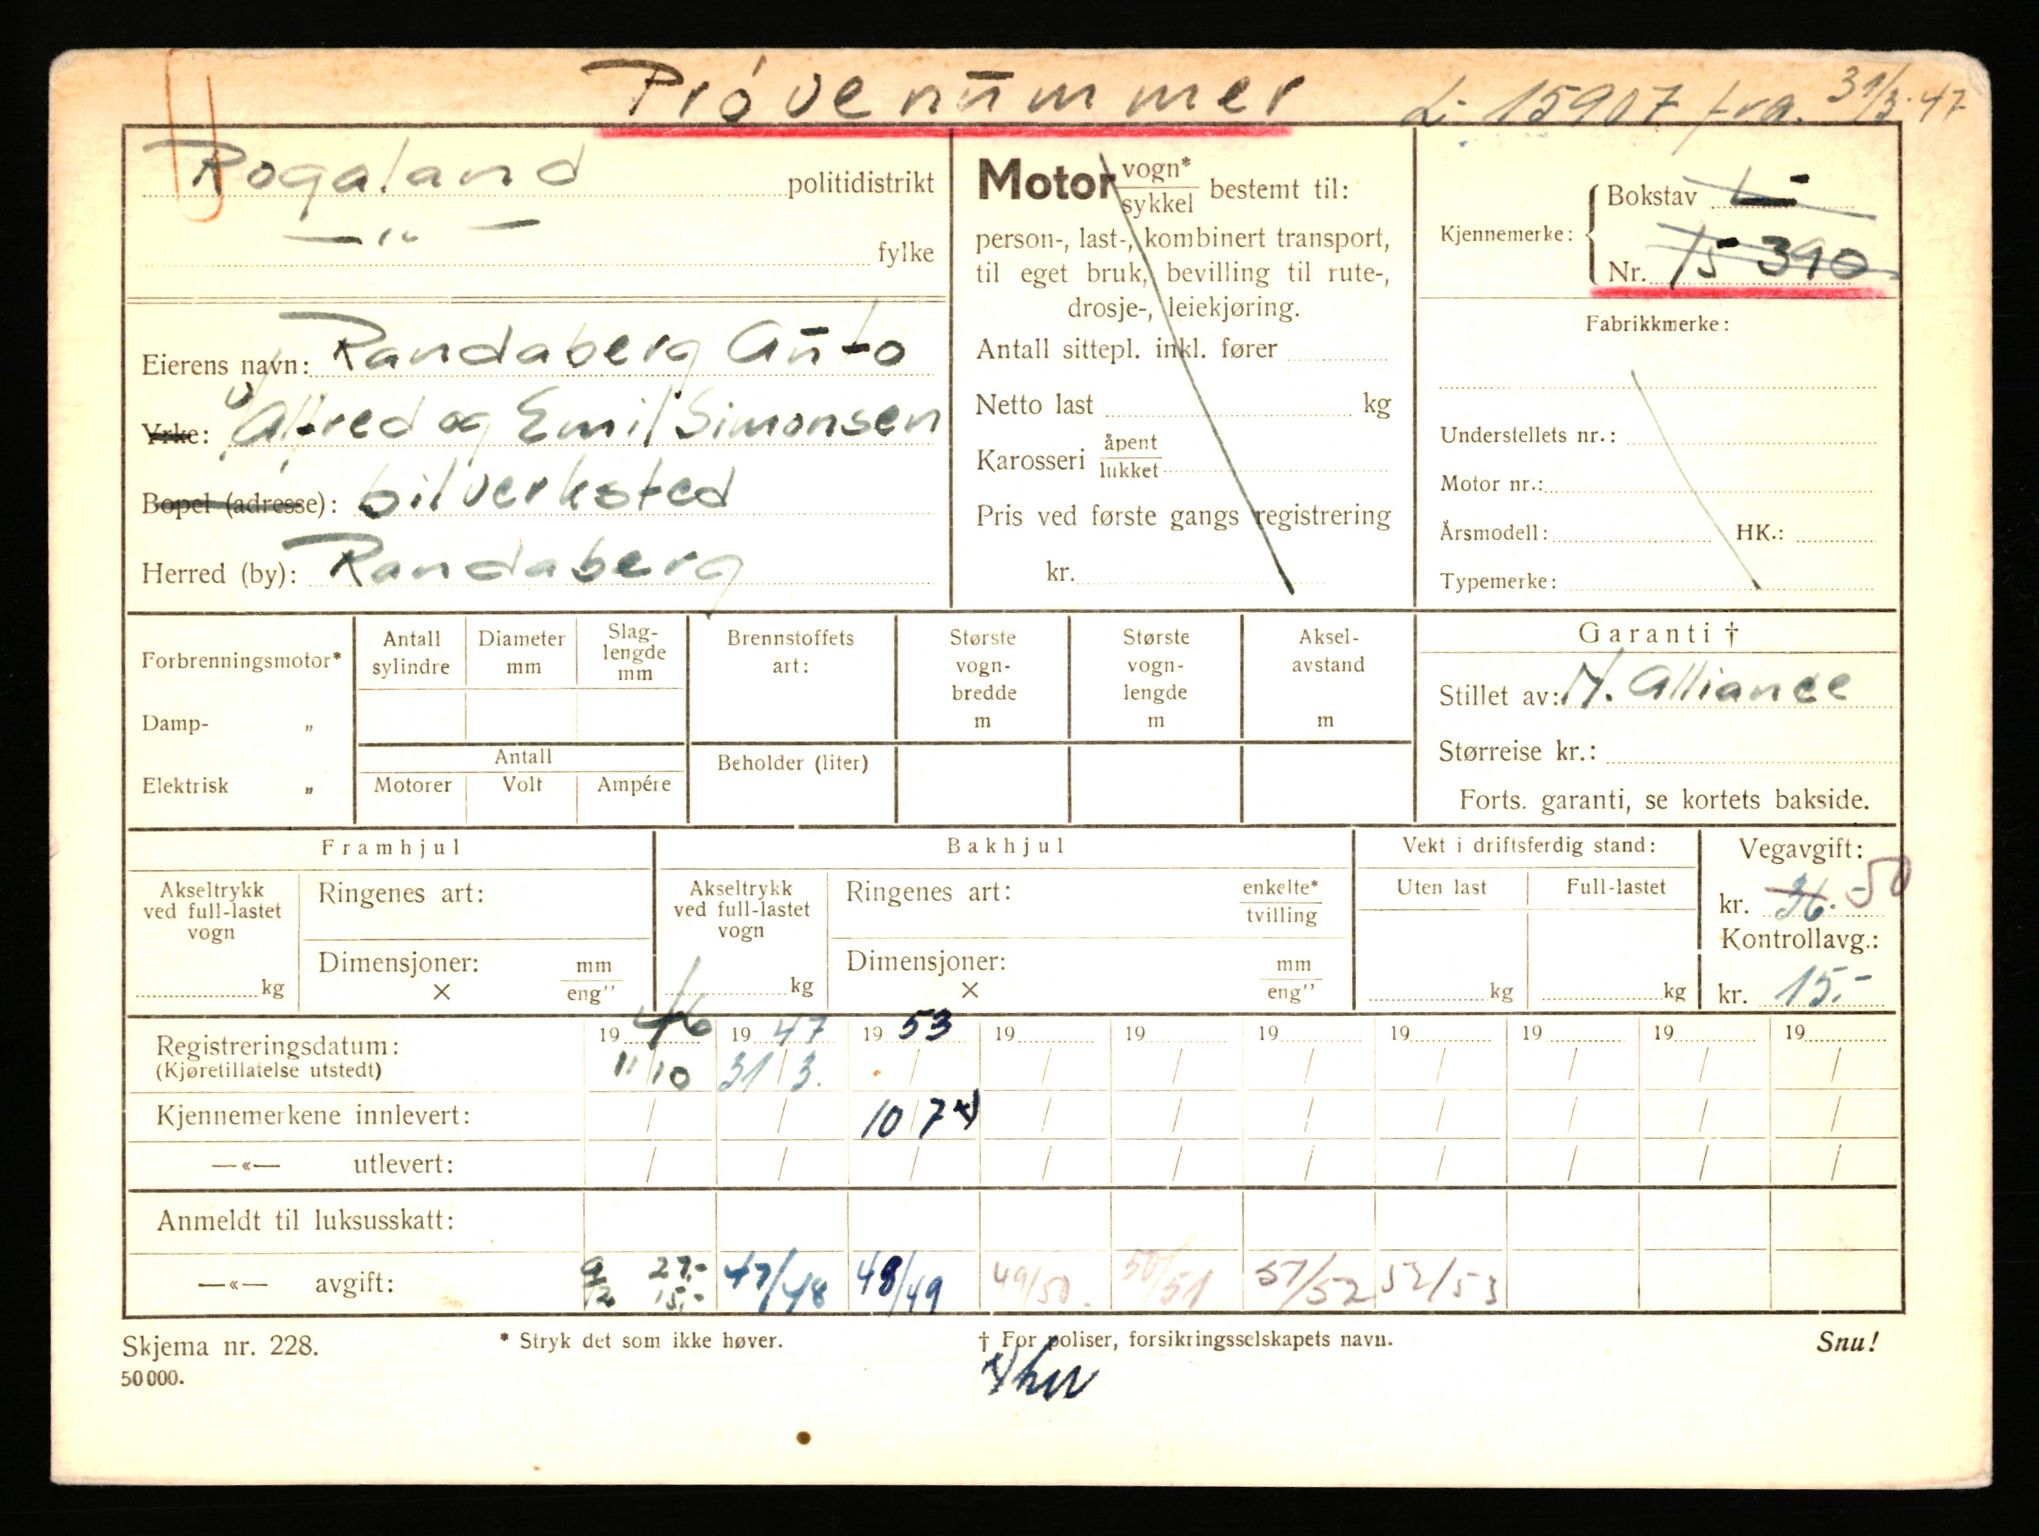 Prøvenummer
L-15907 fra. 31/3-47
Rogaland politidistrikt
—"— fylke
Eierens navn: Randaberg Auto
Yrke: v/ Alfred og Emil Simonsen
Bopel (adresse): bilverksted
Herred (by): Randaberg
Motor vogn* / sykkel bestemt til:
person-, last-, kombinert transport,
til eget bruk, bevilling til rute-,
drosje-, leiekjøring.
Antall sittepl. inkl. fører
Netto last kg
Karosseri åpent / lukket
Pris ved første gangs registrering
kr.
Kjennemerke: Bokstav L-
Nr. 15-390
Fabrikkmerke:
Understellets nr.:
Motor nr.:
Årsmodell: HK.:
Typemerke:
Forbrenningsmotor*
Damp- „
Elektrisk „
Antall sylindre
Diameter mm
Slag-lengde mm
Antall
Motorer Volt Ampére
Brennstoffets art:
Beholder (liter)
Største vogn-bredde m
Største vogn-lengde m
Aksel-avstand m
Garanti †
Stillet av: N. Alliance
Størreise kr.:
Forts. garanti, se kortets bakside.
Framhjul
Akseltrykk ved full-lastet vogn
kg
Ringenes art:
Dimensjoner: mm
× eng"
Bakhjul
Akseltrykk ved full-lastet vogn
kg
Ringenes art: enkelte* / tvilling
Dimensjoner: mm
× eng"
Vekt i driftsferdig stand:
Uten last Full-lastet
kg kg
Vegavgift:
kr. 36.- 50
Kontrollavg.:
kr. 15.-
Registreringsdatum: 19 46 19 47 19 53 19 19 19 19 19 19 19
(Kjøretillatelse utstedt) 11/10 31/3. / / / / / / / /
Kjennemerkene innlevert: / / 10/7 x) / / / / / / /
—«— utlevert: / / / / / / / / / /
Anmeldt til luksusskatt:
—«— avgift: 27.- 15.- 47/48 48/49 49/50. 50/51 51/52 52/53
Skjema nr. 228.
50 000.
* Stryk det som ikke høver.
† For poliser, forsikringsselskapets navn.
Snu!